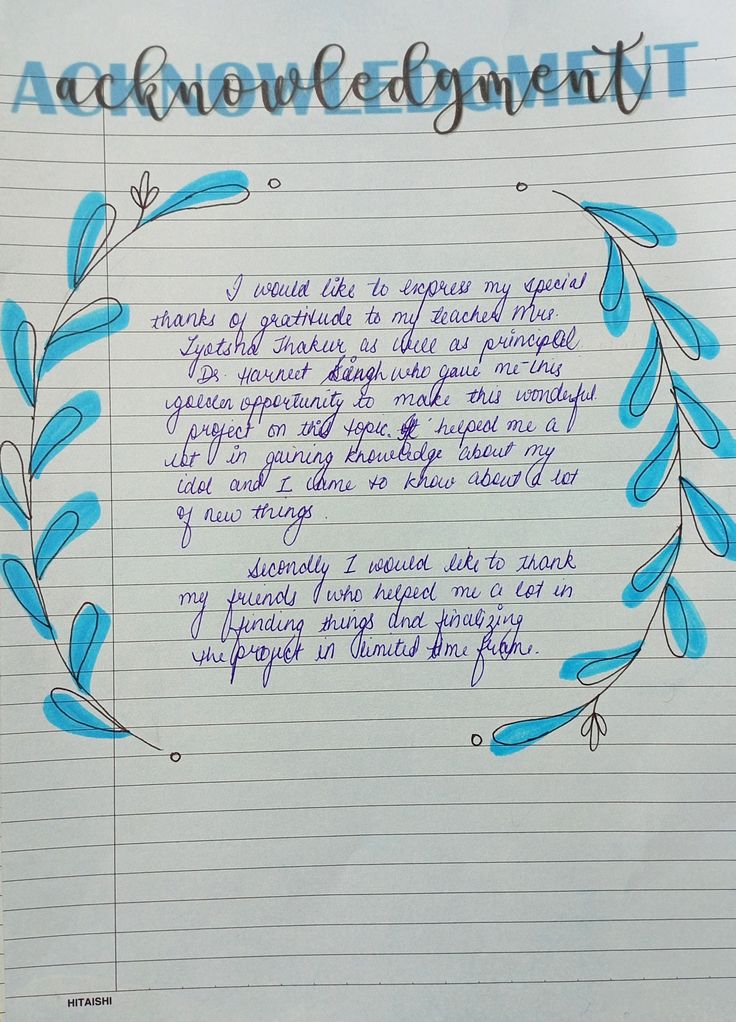 ACKNOWLEDGMENT
acknowledgment
I would like to express my special
thanks of gratitude to my teacher Mrs.
Jyotsna Thakur as well as principal
Dr. Harneet Singh who gave me this
golden opportunity to make this wonderful
project on this topic. It helped me a
lot in gaining knowledge about my
idol and I came to know about a lot
of new things.
Secondly I would like to thank
my friends who helped me a lot in
finding things and finalizing
the project in limited time frame.
HITAISHI